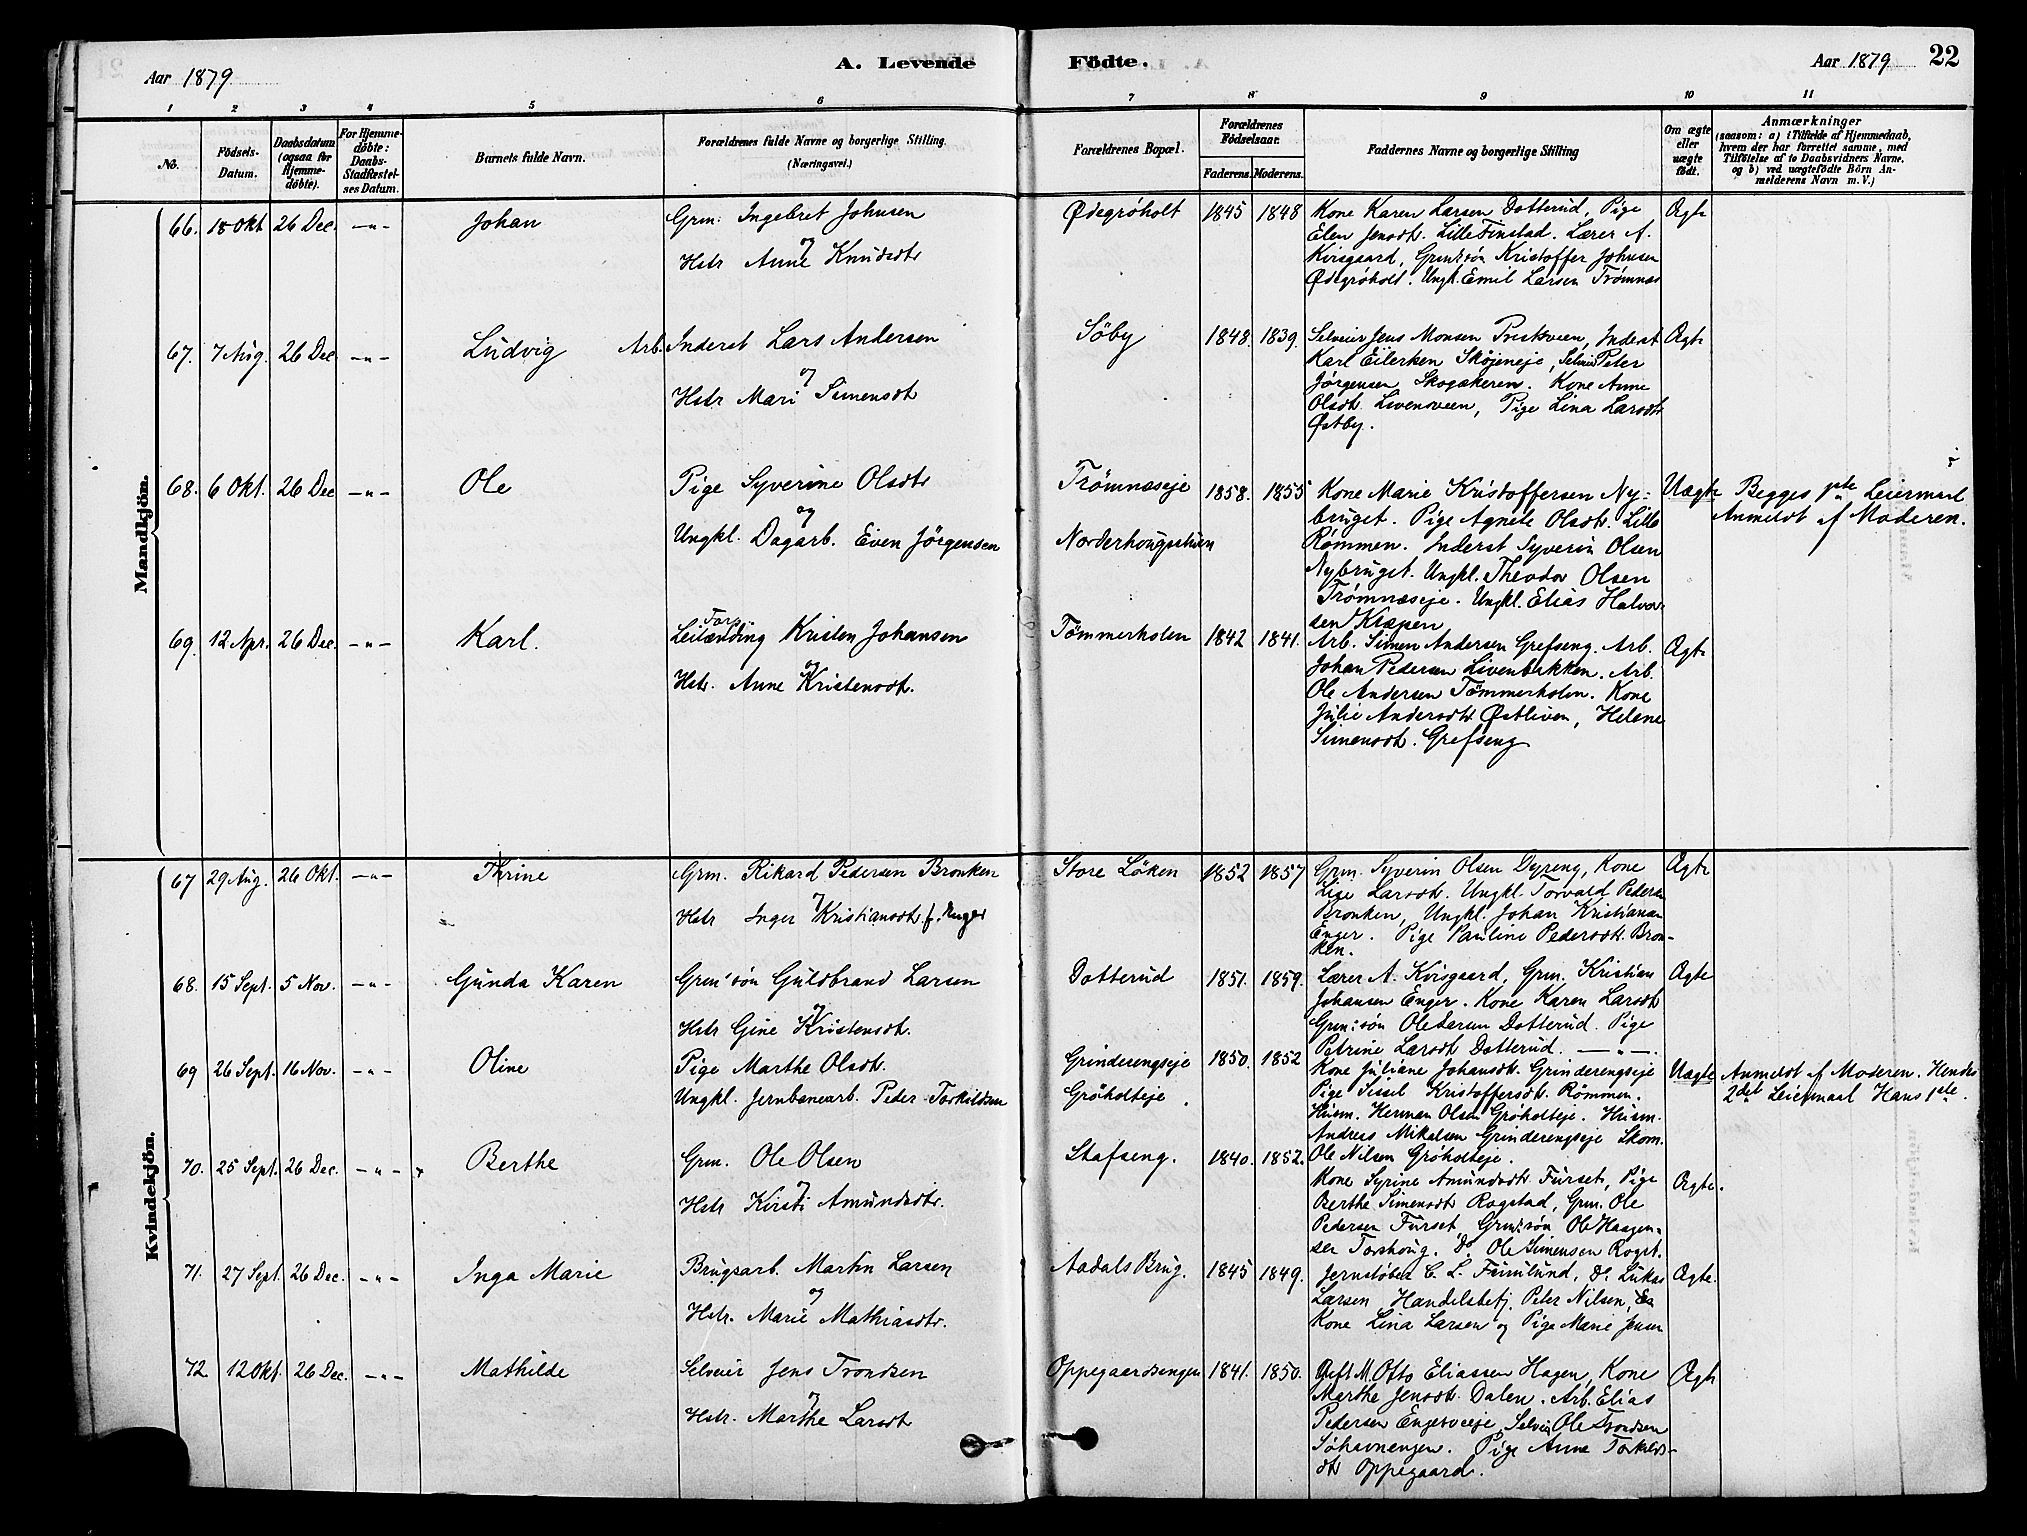 Aar 1879
A. Levende Födte.
Aar 1879
22
1 2 3 4 5 6 7 8 9 10 11
No.
Födsels-Datum.
Daabsdatum (ogsaa for Hjemme-döbte).
For Hjemme-döbte: Daabs-Stadfæstel-ses Datum.
Barnets fulde Navn.
Forældrenes fulde Navne og borgerlige Stilling. (Næringsvei.)
Forældrenes Bopæl.
Forældrenes Födselsaar.
Faderens. Moderens.
Faddernes Navne og borgerlige Stilling
Om ægte eller uægte födt.
Anmærkninger
(saasom: a) i Tilfælde af Hjemmedaab, hvem der har forrettet samme, med Tilföielse af to Daabsvidners Navne, og b) ved uægtefödte Börn An-melderens Navn m. V.)
Mandkjön.
66. 18 Okt 26 Dec. -"- Johan
Grm. Ingebret Johnsen
og
Hstr Anne Knudsdtr
Ødegröholt 1845 1848
Kone Karen Larsen Dotterud, Pige
Elen Jensdtr. Lille Finstad. Lærer A.
Kvisgaard, Grm:sön Kristoffer Johnsen
Ødegröholt. Ungk. Emil Larsen Trömnæs
Ægte
67. 7 Aug. 26 Dec -"- Ludvig
Arb. Inderst Lars Andersen
og
Hstr Mari Simensdt
Söby 1848. 1839.
Selveier Jens Monsen Prestsveen, Inderst
Karl Eilertsen Sköieneie, Selveier Peter
Jörgensen Skogakeren. Kone Anne
Olsdtr. Livensveen, Pige Lina Larsdtr
Østby.
Ægte
68. 6 Okt. 26 Dec -"- Ole
Pige Syverine Olsdtr
og
Ungkl. Dagarb. Even Jörgensen
Trömnæseje
Norderhougsstuen
1858. 1855
Kone Marie Kristoffersen Ny-
bruget. Pige Agnete Olsdtr. Lille
Rømmen. Inderst Syverin Olsen
Nybruget. Ungkl. Theodor Olsen
Trömnæseje. Ungkl. Elias Halvor-
sen Klæpen
Uægte
Begges 1ste Leiermaal
Anmeldt af Moderen.
69. 12 Apr. 26 Dec. -"- Karl.
Leilænding Kristen Johansen
og
Hstr. Anne Kristensdt.
Tömmerholen 1842 1841.
Arb. Simen Andersen Grefseng. Arb.
Johan Pedersen Livenbakken. Arb.
Ole Andersen Tömmerholen. Kone
Julie Andersdtr Østliven, Helene
Simensdt. Grefseng
Ægte
Kvindekjön.
67 29 Aug. 26 Okt. -"- Thrine
Grm. Rikard Pedersen Bronken
og
Hstr Inger Kristiansdt. f. Enger
Store Löken 1852 1857
Grm. Syverin Olsen Dyreng, Kone
Lise Larsdt. Ungkl. Torvald Pedersen
Bronken, Ungkl. Johan Kristiansen
Enger. Pige Pauline Pedersdt. Bron-
ken.
Ægte
68. 15 Sept. 5 Nov. -"- Gunda Karen
Grm:sön Guldbrand Larsen
og
Hstr Gine Kristensdt.
Dotterud 1851. 1859.
Lærer A. Kvisgaard, Grm. Kristian
Johansen Enger. Kone Karen Larsdt
Grm:sön Ole Larsen Dotterud. Pige
Petrine Larsdt Dotterud. -"-.
Ægte
69 26 Sept. 16 Nov. -"- Oline
Pige Marthe Olsdt.
Ungkl. Jernbanearb. Peder Torkildsen
Grinderengseje
Gröholteje.
1850. 1852
Kone Juliane Johansdt. Grinderengseje
Pige Sissel Kristoffersdt. Römmen.
Husm. Herman Olsen Gröholteje. Husm.
Andreas Mikalsen Grinderengseje Skom.
Ole Nilsen Gröholteje.
Uægte
Anmeldt af Moderen. Hendes
2det Leiermaal Hans 1ste.
70. 25 Sept. 26 Dec. -"- Berthe
Grm. Ole Olsen
og
Hstr Kirsti Amundsdtr.
Stafseng. 1840. 1852.
Kone Syrine Amundsdt. Furset, Pige
Berthe Simensdt Rogstad, Grm. Ole
Pedersen Furset, Grm:sön Ole Haagen-
sen Torshoug. Do Ole Simensen Rogst.
Ægte.
71. 27 Sept. 26 Dec. -"- Inga Marie
Brugsarb. Martin Larsen
og
Hstr. Marie Mathiasdtr.
Aadals Brug. 1845 1849.
Jernstöber C. L. Do. Lukas
Larsen Handelsbetj. Peter Nilsen,
Kone Lina Larsen og Pige Marie Jensen
Ægte.
72 12 Okt. 26 Dec. -"- Mathilde
Selveier Jens Trondsen
og
Hstr. Marthe Larsdt
Oppegaardsengen 1841. 1850.
Gift M. Otto Eliassen Hagen, Kone
Marthe Jensdt. Dalen. Arb. Elias
Pedersen Engersveeje, Selveier Ole Trondsen
Söhavnengen. Pige Anne Torkilds-
dtr Oppegaard.
Ægte